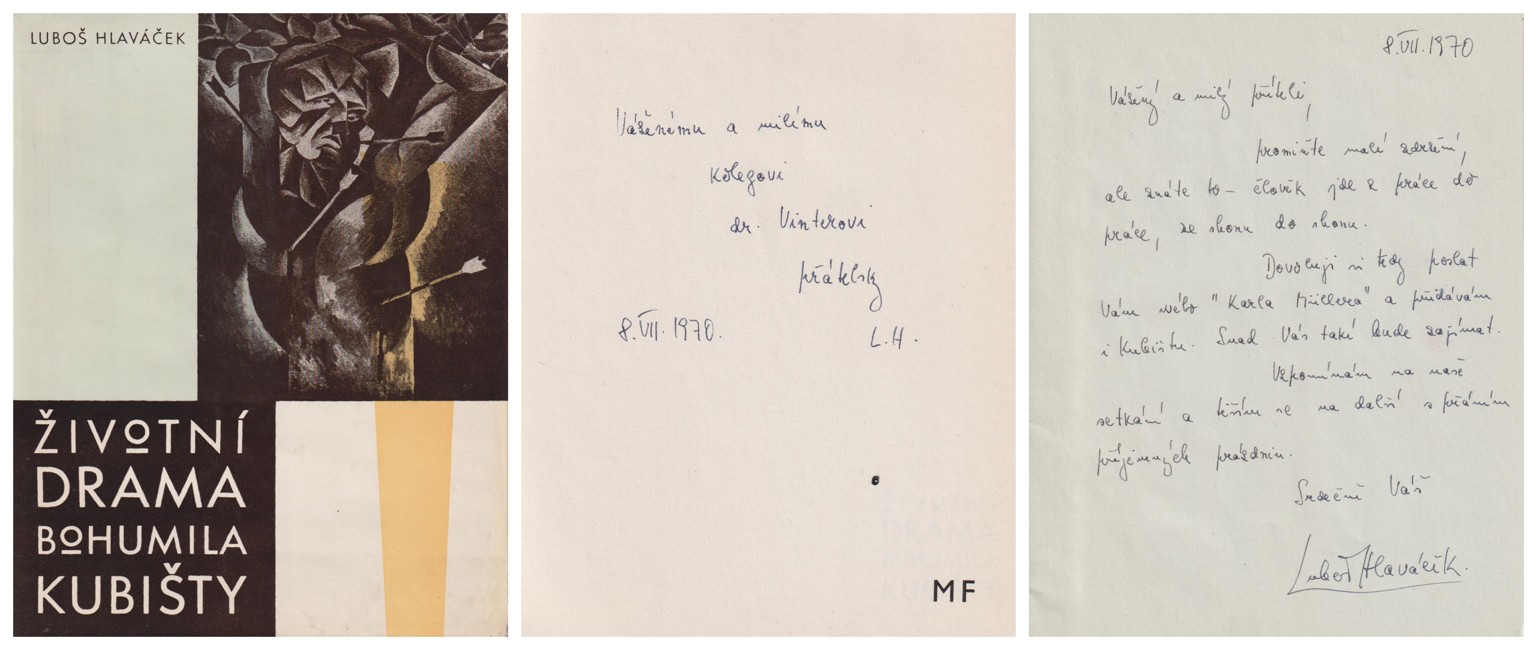 LUBOŠ HLAVÁČEK
ŽIVOTNÍ
DRAMA
BOHUMILA
KUBIŠTY
Váženému a milému
kolegovi
dr. Vinterovi
přátelsky
8.VII.1970.
L.H.
MF
8.VII.1970
Vážený a milý příteli,
promiňte malé zdržení,
ale znáte to – člověk jde z práce do
práce, ze shonu do shonu.
Dovoluji si tedy poslat
Vám mého "Karla Müllera" a přidávám
i Kubištu. Snad Vás také bude zajímat.
Vzpomínám na naše
setkání a těším se na další s přáním
příjemných prázdnin.
Srdečně Váš
Luboš Hlaváček.